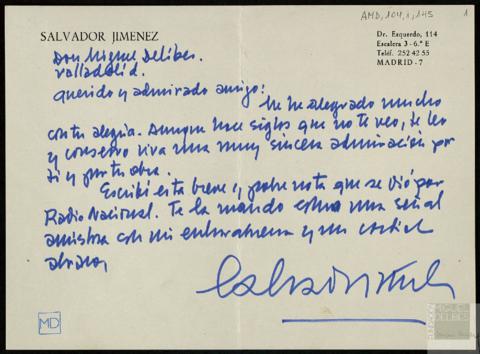 AMD, 104, 1, 145
1
SALVADOR JIMENEZ
Dr. Esquerdo, 114
Escalera 3 - 6.º E
Teléf. 252 42 55
MADRID - 7
Don Miguel Delibes.
Valladolid.
Querido y admirado amigo:
Me he alegrado mucho
con tu alegría. Aunque hace siglos que no te veo, te leo
y conservo viva una muy sincera admiración por
ti y por tu obra.
Escribí esta breve y pobre nota que se dió por
Radio Nacional. Te la mando como una señal
amistosa con mi enhorabuena y un cordial
abrazo,
Salvador
MD
FUNDACIÓN
MIGUEL
DELIBES